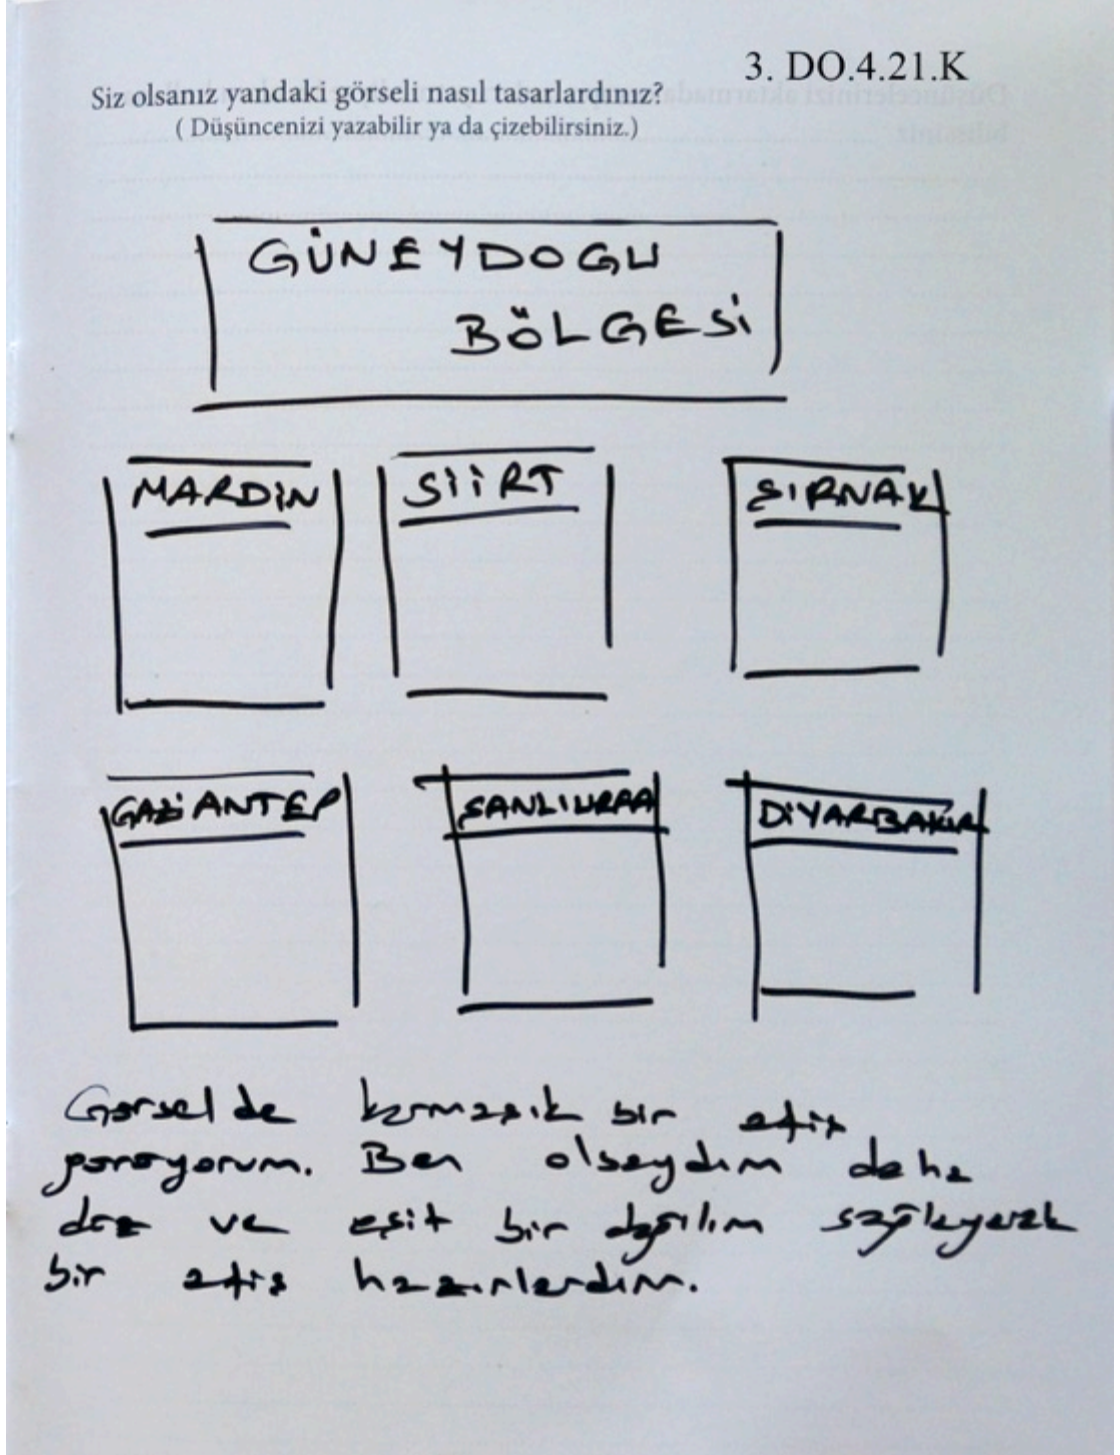 3. DO.4.21.K
Siz olsanız yandaki görseli nasıl tasarlardınız?
( Düşüncenizi yazabilir ya da çizebilirsiniz.)
GÜNEYDOGU
BÖLGESİ
MARDİN SİİRT ŞIRNAK
GAZİANTEP ŞANLIURFA DİYARBAKIR
Görselde karmaşık bir afiş
görüyorum. Ben olsaydım daha
düz ve eşit bir dağılım sağlayarak
bir afiş hazırlardım.